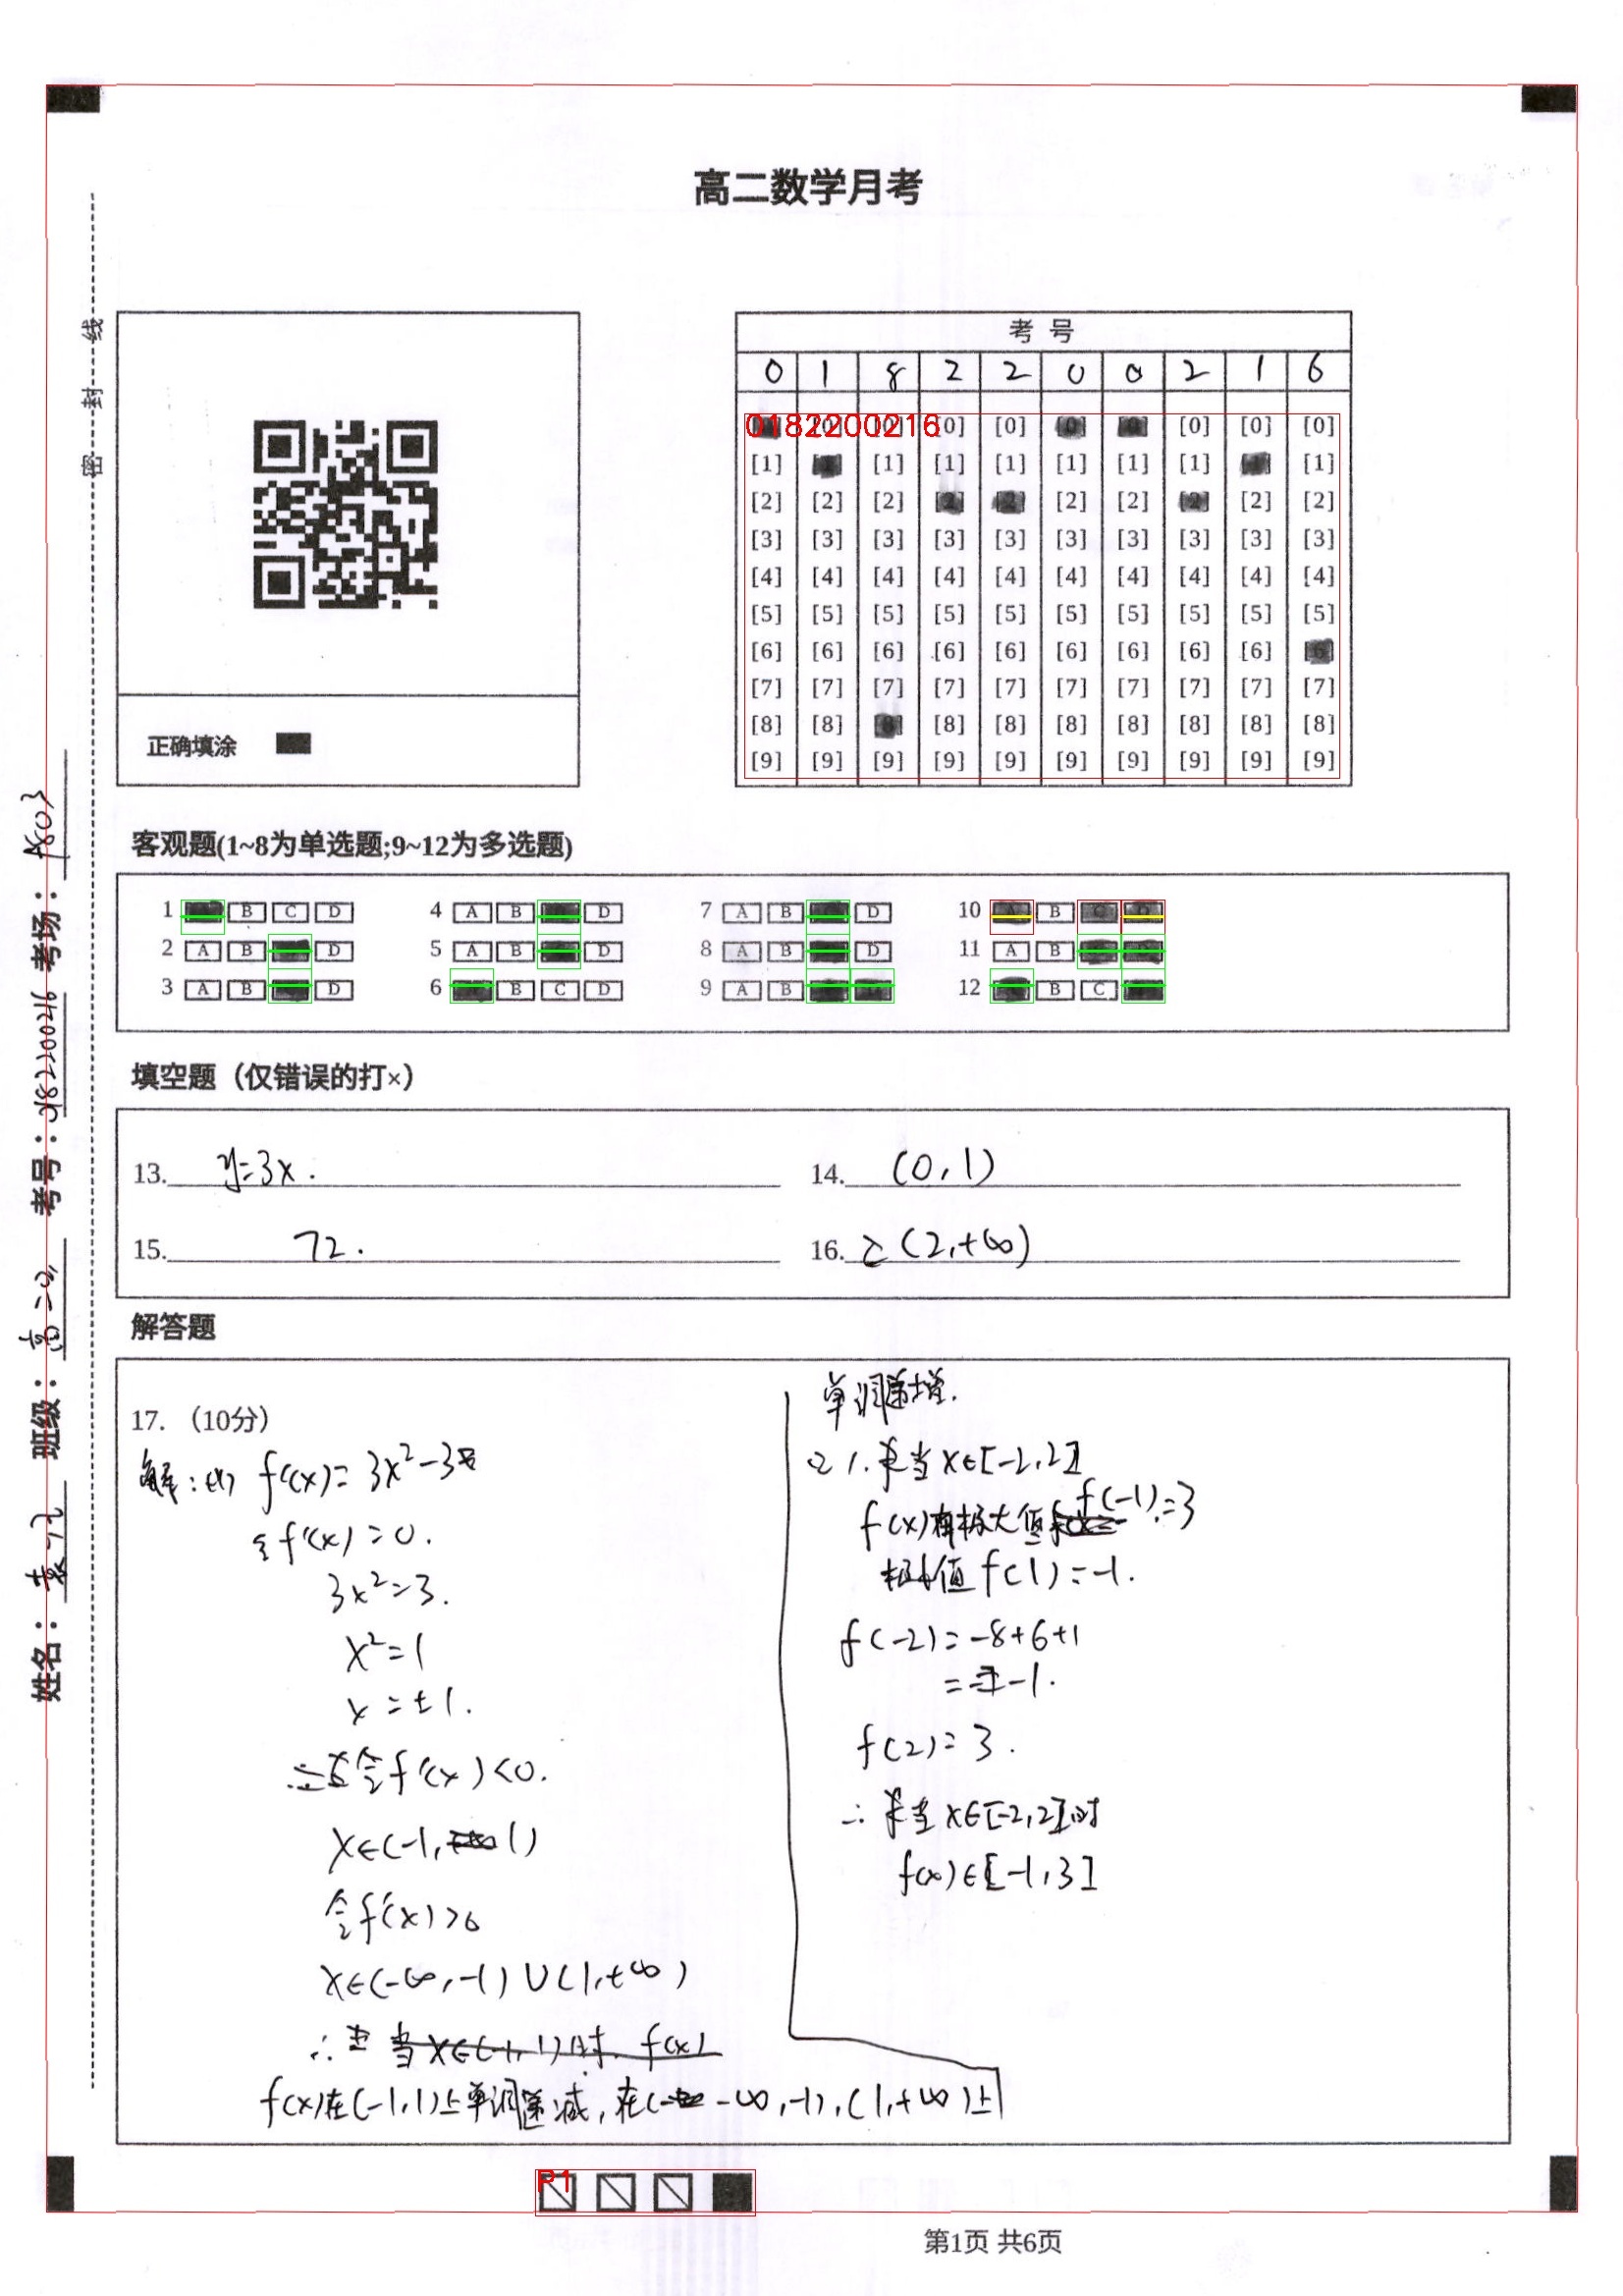 高二数学月考
密 封 线
姓名： 班级： 考号：0182200216 考场：
正确填涂
考 号
0 1 8 2 2 0 0 2 1 6
0182200216
[0] [0] [0] [0] [0] [0] [0] [0] [0] [0]
[1] [1] [1] [1] [1] [1] [1] [1] [1] [1]
[2] [2] [2] [2] [2] [2] [2] [2] [2] [2]
[3] [3] [3] [3] [3] [3] [3] [3] [3] [3]
[4] [4] [4] [4] [4] [4] [4] [4] [4] [4]
[5] [5] [5] [5] [5] [5] [5] [5] [5] [5]
[6] [6] [6] [6] [6] [6] [6] [6] [6] [6]
[7] [7] [7] [7] [7] [7] [7] [7] [7] [7]
[8] [8] [8] [8] [8] [8] [8] [8] [8] [8]
[9] [9] [9] [9] [9] [9] [9] [9] [9] [9]
客观题(1~8为单选题;9~12为多选题)
1 B C D 4 A B D 7 A B D 10 A B C D
2 A B D 5 A B D 8 A B D 11 A B
3 A B D 6 B C D 9 A B 12 B C
填空题（仅错误的打×）
13. y=3x. 14. (0,1)
15. 72. 16. (2,+∞)
解答题
17.（10分）
解：(1) f'(x)=3x²-3
令f'(x)=0.
3x²=3.
x²=1
x=±1.
令f'(x)<0.
x∈(-1, 1)
令f'(x)>0
x∈(-∞,-1)∪(1,+∞)
∴ 当x∈(-1,1)时. f(x)
f(x)在(-1,1)上单调递减,在(-∞,-1),(1,+∞)上
单调递增.
(2) 当x∈[-2,2]
f(x)有极大值f(-1)=3
极小值f(1)=-1.
f(-2)=-8+6+1
=-1.
f(2)=3.
∴ 当x∈[-2,2]时
f(x)∈[-1,3]
P1
第1页 共6页